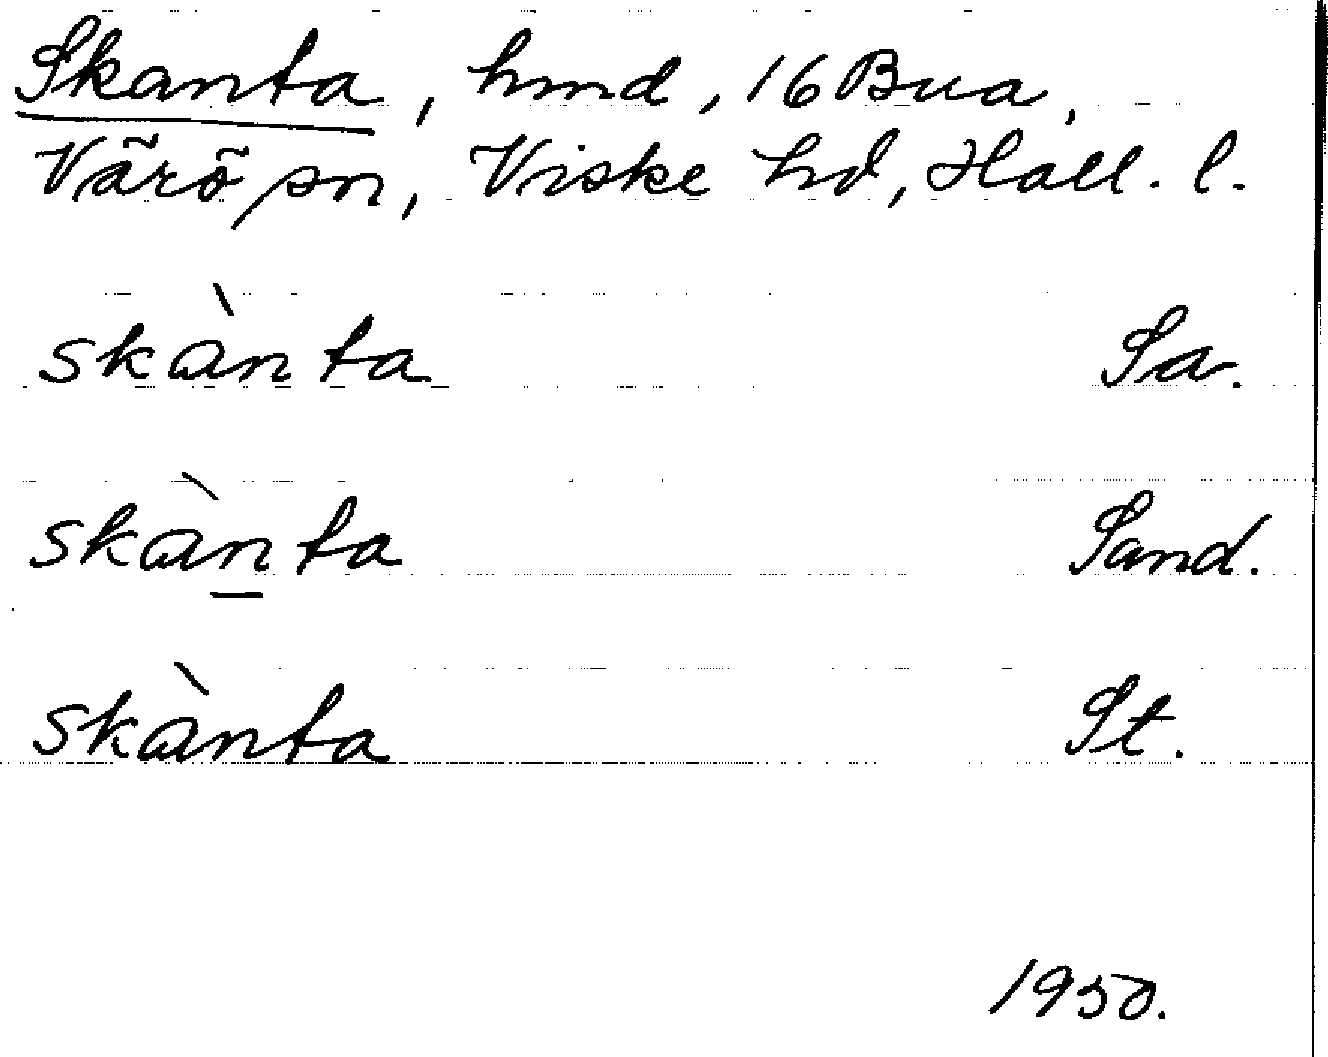 Skanta, hmd, 16 Bua,
Värö sn, Viske hd, Hall. l.
skànta Sa.
skànta Sand.
skànta St.
1950.